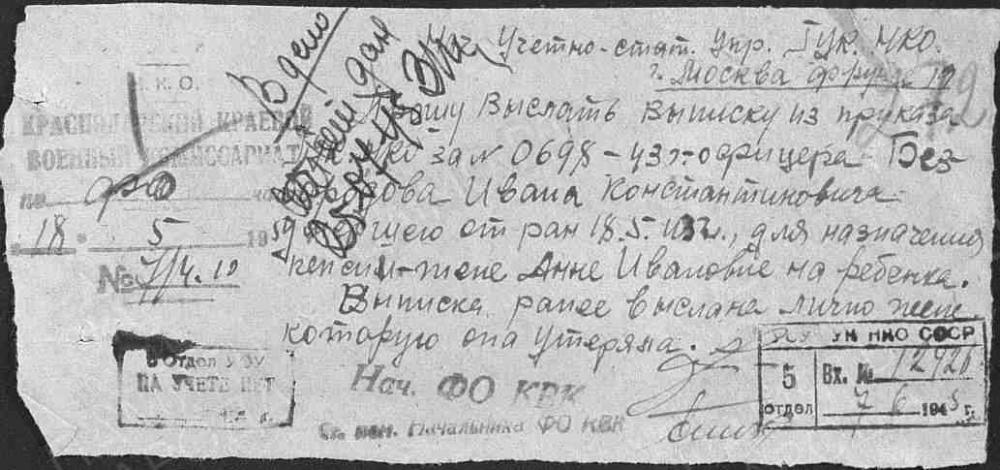 Учетно-стат. Упр. ГУК. НКО.
г. Москва Фрунзе 19
Прошу Выслать выписку из приказа
за № 0698 - офицера Без-
Ивана Константиновича
от ран 18.5. для назначения
пенсии - жене Анне Ивановне на ребенка.
Выписка ранее выслана лично жене
которую она утеряла.
В дело
Н.К.О.
КРАСНОДАРСКИЙ КРАЕВОЙ
ВОЕННЫЙ КОМИССАРИАТ
по фо
18 " 5 19
№ 7/14.10
В Отдел У ЗУ
НА УЧЕТЕ НЕТ
Нач. ФО КВК
Ст. пом. Начальника ФО КВК
УК НКО СССР
5 отдел
Вх. № 12926
7 6 1945 г.